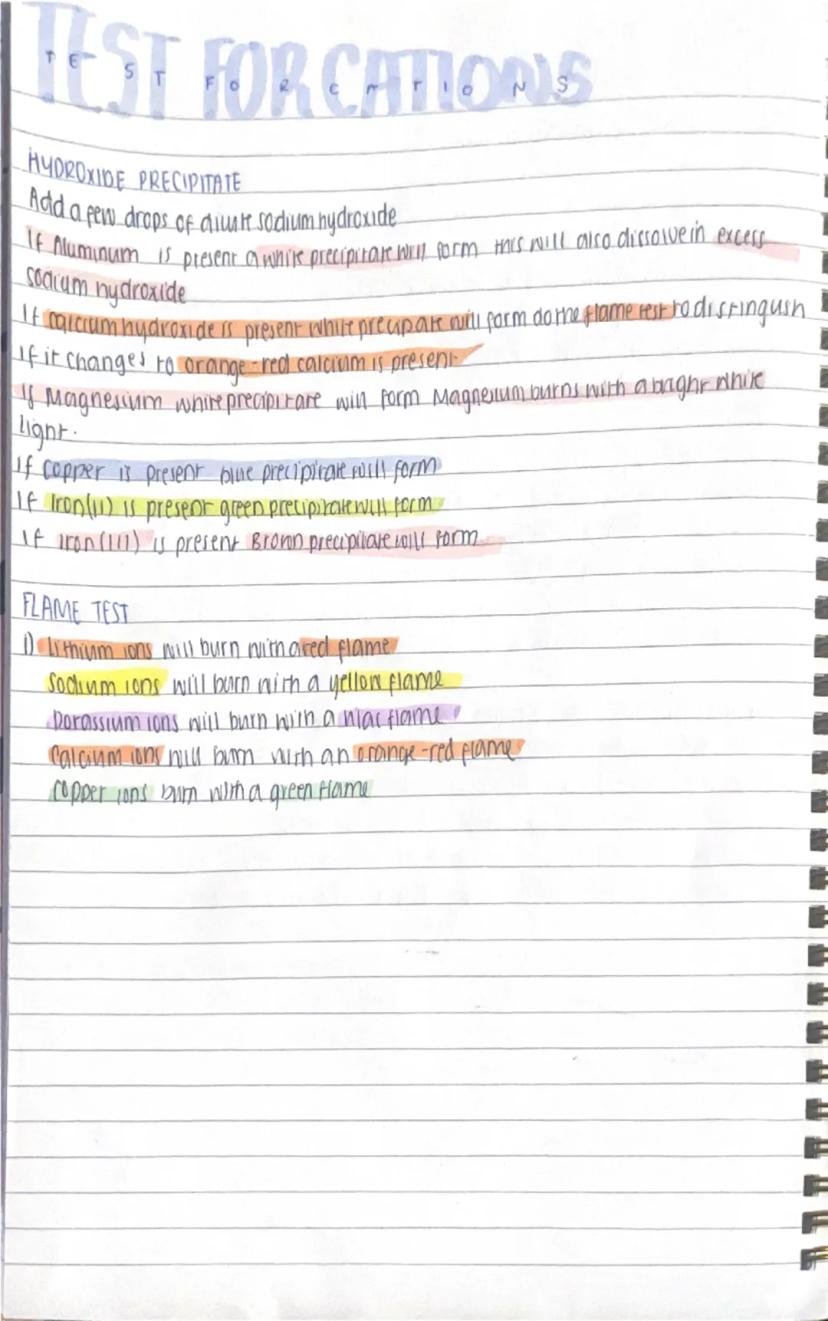 TEST FOR CATIONS
TEST FOR CATIONS
HYDROXIDE PRECIPITATE
Add a few drops of dilute sodium hydroxide
If Aluminum is present a white precipitate will form this will also dissolve in excess
sodium hydroxide
If calcium hydroxide is present white precipate will form do the flame test to distingush
If it changes to orange-red calcium is present
If Magnesium white precipitate will form Magnesium burns with a bright white
light.
If copper is present blue precipitate will form
If Iron(II) is present green precipitate will form
If iron(III) is present Brown precipitate will form
FLAME TEST
1) Lithium ions will burn with a red flame
Sodium ions will burn with a yellow flame
Potassium ions will burn with a lilac flame
Calcium ions will burn with an orange-red flame
Copper ions burn with a green flame